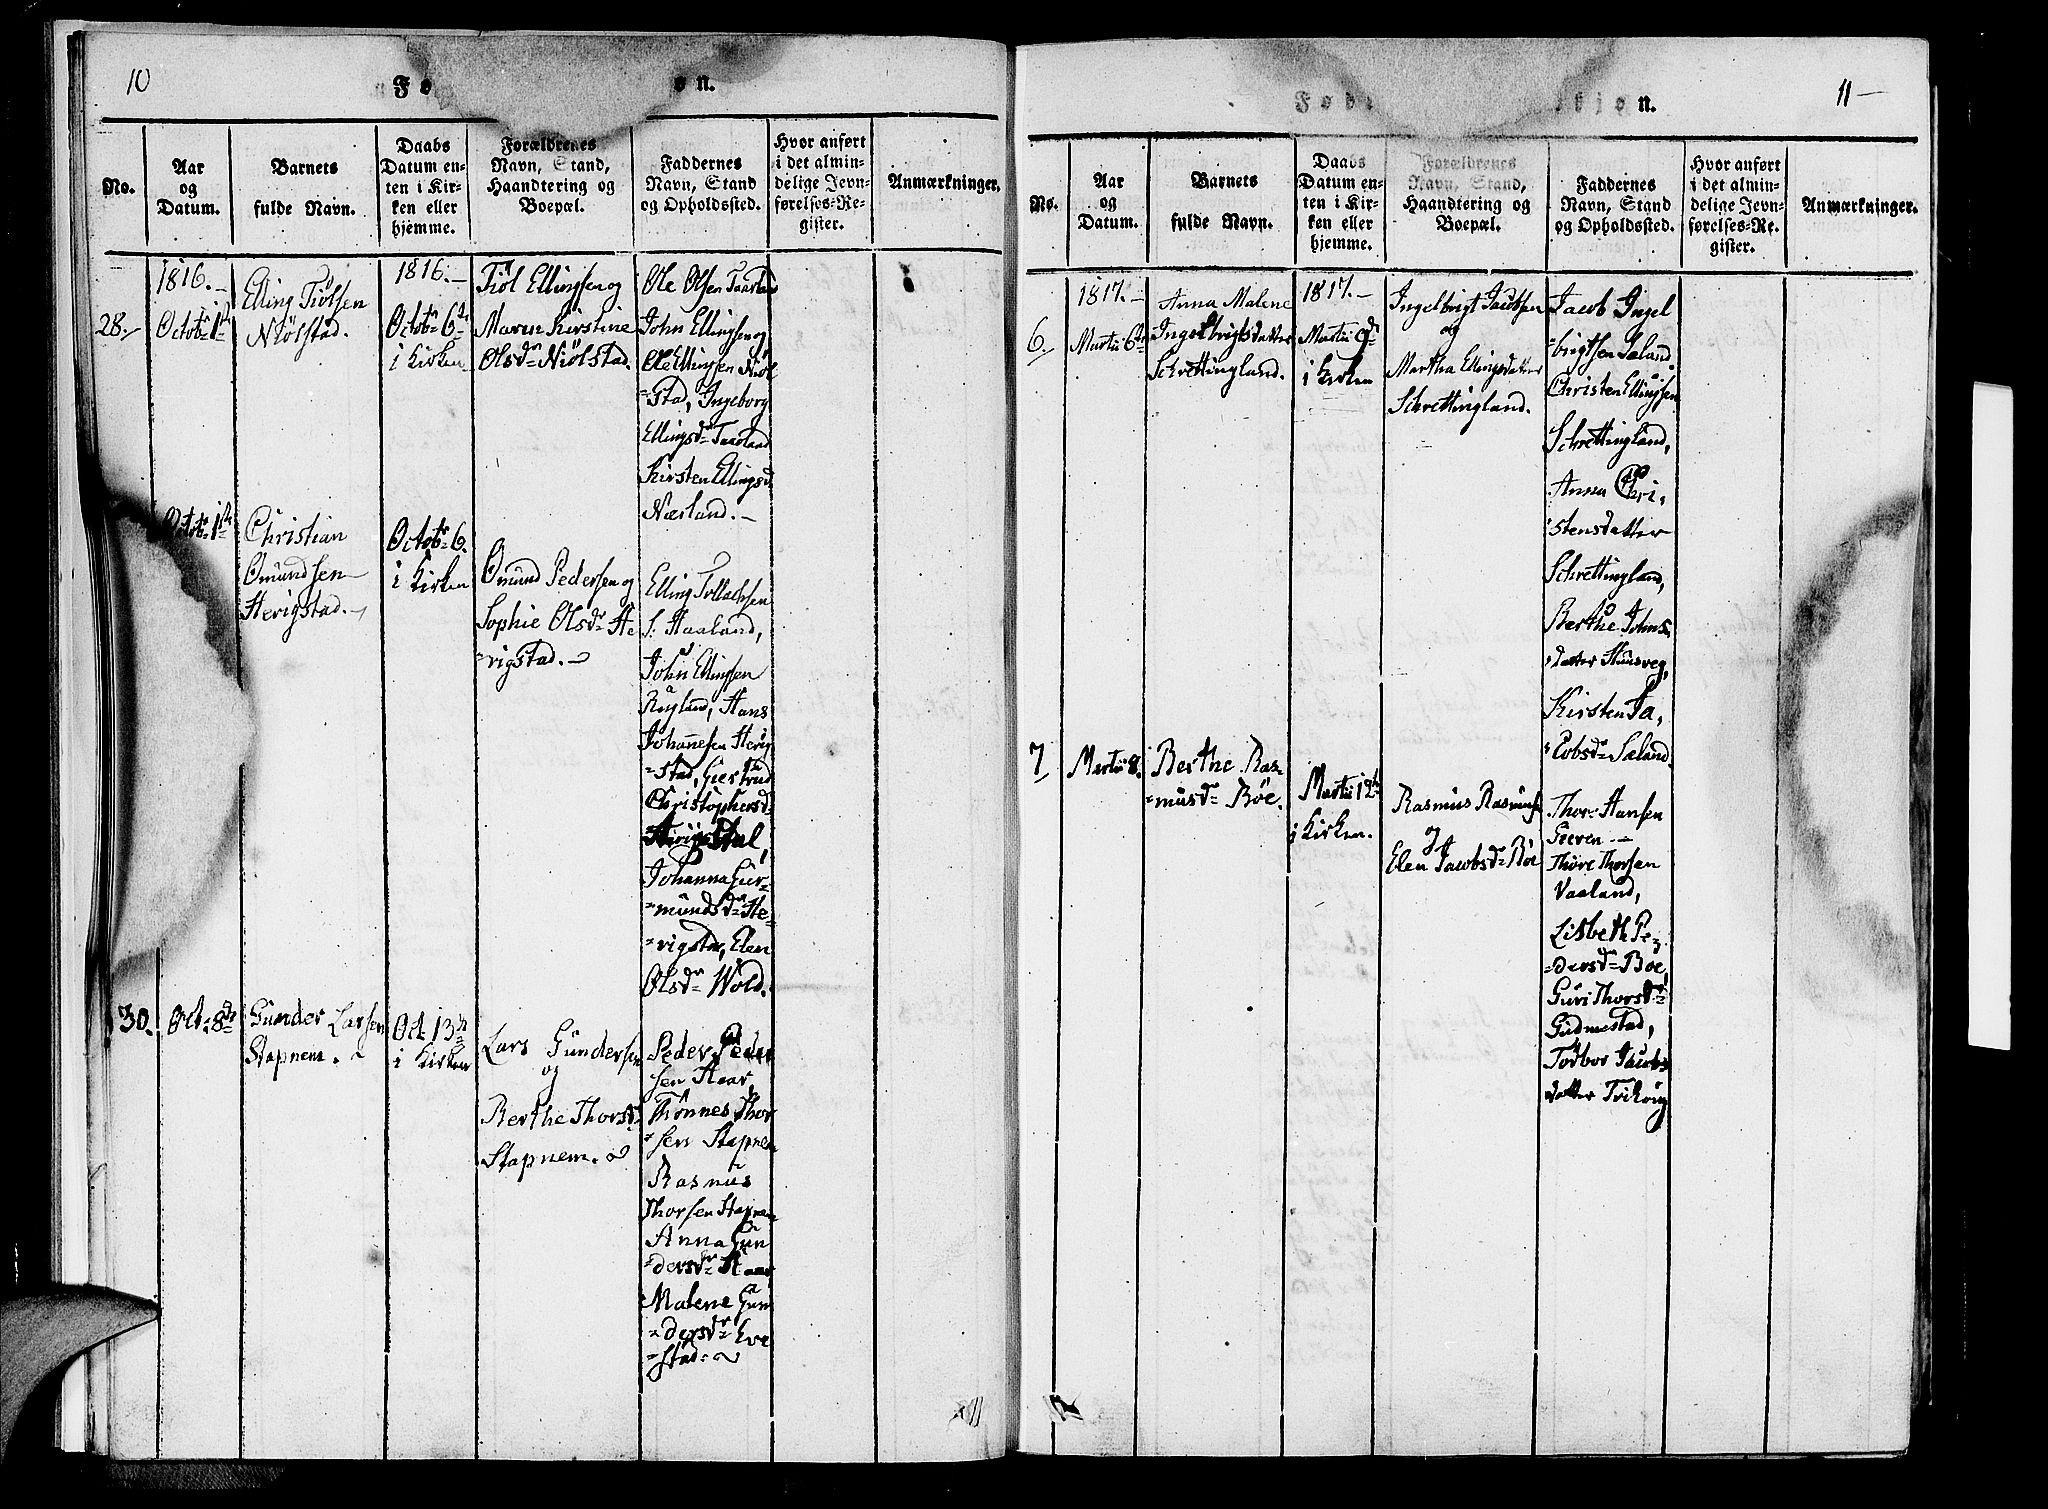 10
n.
No.
Aar
og
Datum.
Barnets
fulde Navn.
Daabs
Datum en-
ten i Kir-
ken eller
hjemme.
Forældrenes
Navn, Stand,
Haandtering og
Boepæl.
Faddernes
Navn, Stand
og Opholdssted.
Hvor anført
i det almin-
delige Jevn-
førelses-Re-
gister.
Anmærkninger.
28.
1816.
Octobr 1ste
Elling Tiölsen
Niölstad.
1816.
Octobr 6te
i Kirken
Tiöl Ellingsen og
Maren Kirstine
Olsdr Niölstad.
Ole Olsen Taarland
John Ellingsen og
Ole Ellingsen Niöl
=stad, Ingeborg
Ellingsdr Taarland
Kirsten Ellingsd
Nærland.
Octobr 1ste
Christian
Omundsen
Herigstad.
Octobr 6.
i Kirken
Omund Pedersen og
Sophie Olsdr He
=rigstad.
Elling Tollachsen
S: Haaland,
John Ellingsen
Rogland, Hans
Johannesen Herig
=stad, Giertrud
Christophersd
Johanna Gur-
=mundsdr He-
=rigstad, Elen
Olsdr Wold.
30.
Oct. 8de
Gunder Larsen
Stapnem.
Oct. 13de
i Kirken
Lars Gundersen
og
Berthe Thorsdr
Stapnem.
Peder Peder
sen Haar,
Thönnes Thor
=sen Stapnem
Rasmus
Thorsen Stapnem
Anna Gun
=dersdr Haar
Malene Gun
=dersdr Eve
=stad.
11
n.
No.
Aar
og
Datum.
Barnets
fulde Navn.
Daabs
Datum en-
ten i Kir-
ken eller
hjemme.
Forældrenes
Navn, Stand,
Haandtering og
Boepæl.
Faddernes
Navn, Stand
og Opholdssted.
Hvor anført
i det almin-
delige Jevn-
førelses-Re-
gister.
Anmærkninger.
6.
1817.
Martii 6te
Anna Malene
Ingelbrigtsdatter
Schrettingland.
1817.
Martii 9de
i Kirken
Ingelbrigt Jacobsen
og
Martha Ellingsdatter
Schrettingland.
Jacob Ingel
=brigtsen Sæland
Christen Ellingsen
Schrettingland,
Anna Chri,
=stensdatter
Schrettingland,
Berthe Johns,
=datter Huusveg,
Kirsten Ja,
=cobsdr Sæland.
7
Martii 8.
Berthe Ras-
=musdr Böe.
Martii 12te
i Kirken.
Rasmus Rasmusen
og
Elen Jacobsdr Böe
Thor Hansen
Gieren
Thore Thorsen
Vaaland,
Lisbeth Pe,
=dersdr Böe,
Guri Thorsdr
Gudmestad,
Torbor Jacobs
datter Tviköig